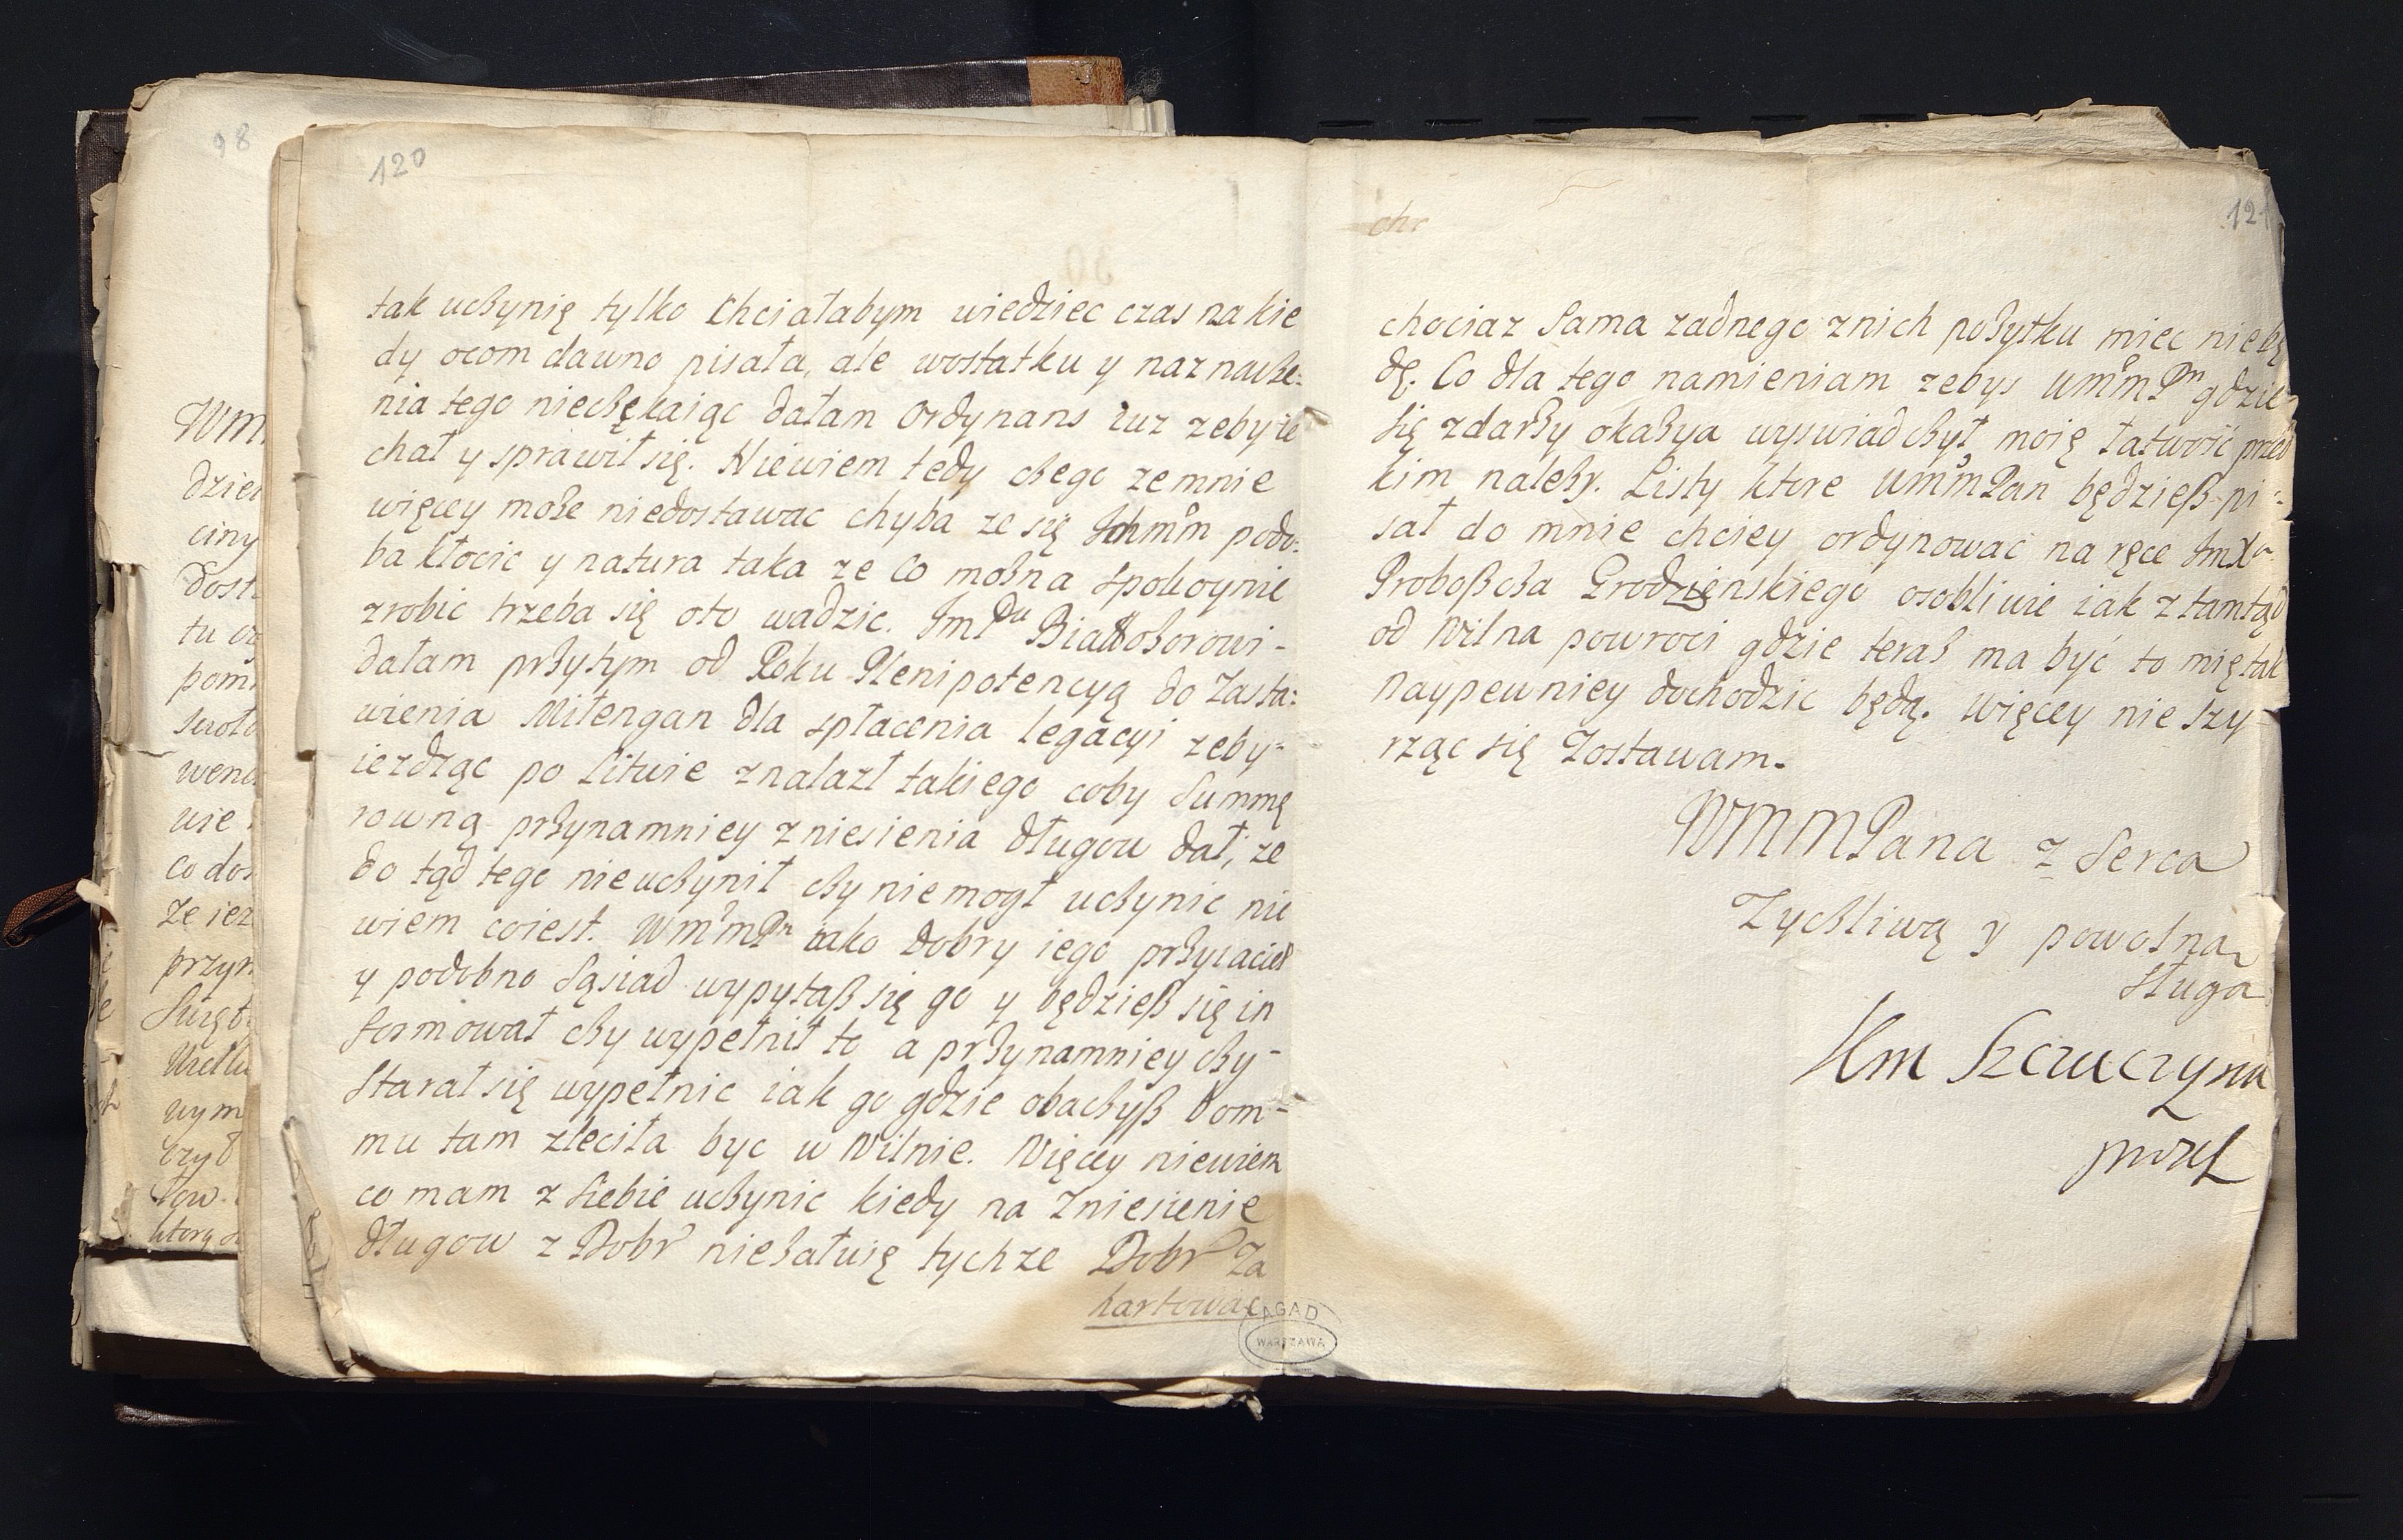 98
WM
dziec
ciny
dost
tu
pom
wend
wie
co dos
Ze iez
przyn
wym
czyb
Tow
ktorą
120
tak uczynię tylko Chciałabym wiedziec czas na kie
dy ocom dawno pisała, ale wostatku y naznacze:
nia tego nieczękaiąc dałam Ordynans iuz zeby ie
chał y sprawił się. Niewiem tedy czego zemnie
więcey może niedostawac chyba ze się Ichmm podo:
ba kłocic y natura taka ze Co można Spokoynie
zrobic trzeba się oto wadzic. ImPu Białłozorowi-
dałam przytym od Roku Plenipotencyą do Zasta:
wienia Mitengan dla spłacenia legacyi zeby-
iezdząc po Litwie znalazł takiego coby Summę
rowną przynamniey zniesienia długow dał, ze
do tąd tego nieuczynił czy niemogł uczynic nie
wiem coiest. WmmPn iako Dobry iego przyiaciel
y podobno Sąsiad wypytaß się go y będzieß się in
formował czy wypełnił to a przynamniey czy-
Starał się wypełnic iak go gdzie obaczyß bom-
mu tam zleciła byc w Wilnie. Więcey niewiem
co mam z Siebie uczynic kiedy na Zniesienie
długow z Dobr nieżałuię tychze Dobr Za
hartowac
AGAD
WARSZAWA
chc
121
chociaz Sama zadnego znich pożytku miec niebę
dę. Co dla tego namieniam zebys WmmPn gdzie
się zdarzy okazya wyswiadczył moię łatwość przed
kim należy. Listy ktore WmmPan będzieß pi-
sał do mnie chciey ordynować na ręce ImXa
Proboßcza Grodzięnskiego osobliwie iak ztamtąd
od Wilna powroci gdzie teraz ma być to mię tak
naypewniey dochodzic będą. Więcey nie Szy-
rząc się Zostawam.
WMMPana z Serca
Zyczliwą y powolną
Sługą
Szczuczyna